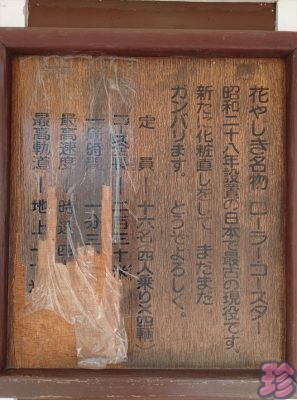 花やしき名物 ローラーコースター
昭和二十八年設置の日本で最古の現役です。
新たに化粧直しをして、まだまだ
ガンバリます。どうぞよろしく。
定員―十六名(四人乗り×四輌)
コース
一周時間―一分三
最高速度―時速四
最高軌道―地上
珍